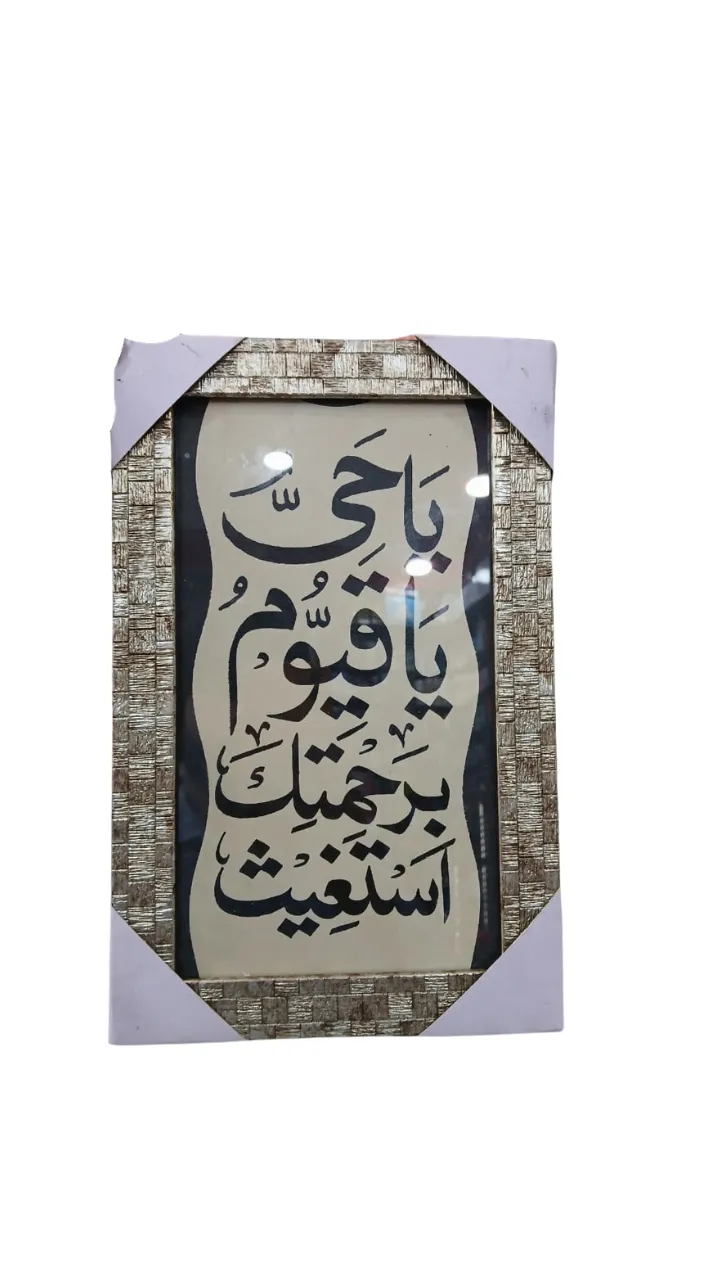 يَا حَىُّ
يَا قَيُّوْمُ
بِرَحْمَتِكَ
اَسْتَغِيْثُ